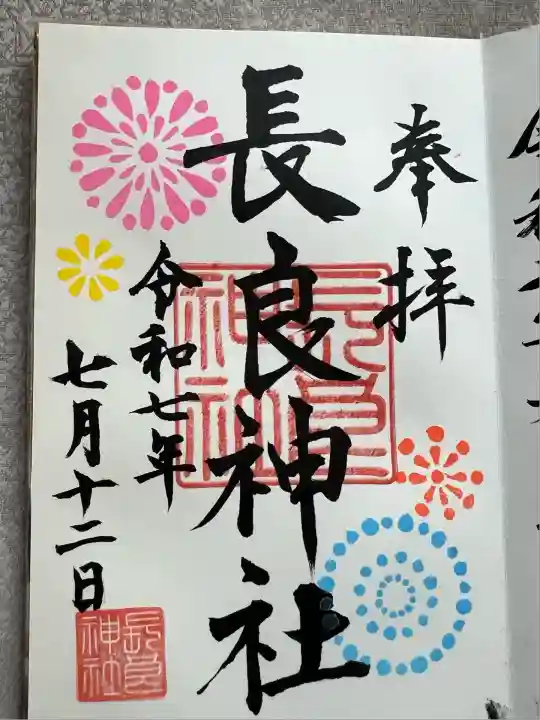 奉拝
長良神社
令和七年
七月十二日
長良神社
長良神社